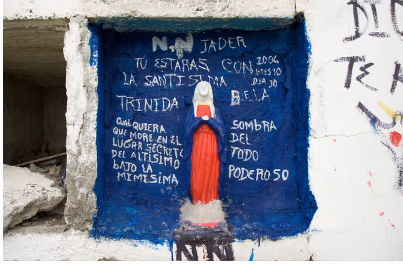 N.N JADER
TÚ ESTARAS CON
LA SANTISIMA
TRINIDA
2006
MES 10
DIA 30
DE LA
CUALQUIERA
QUE MORE EN EL
LUGAR SECRETO
DEL ALTISIMO
BAJO LA
MIMISIMA
SOMBRA
DEL
TODO
PODEROSO
NN
DIO
TE